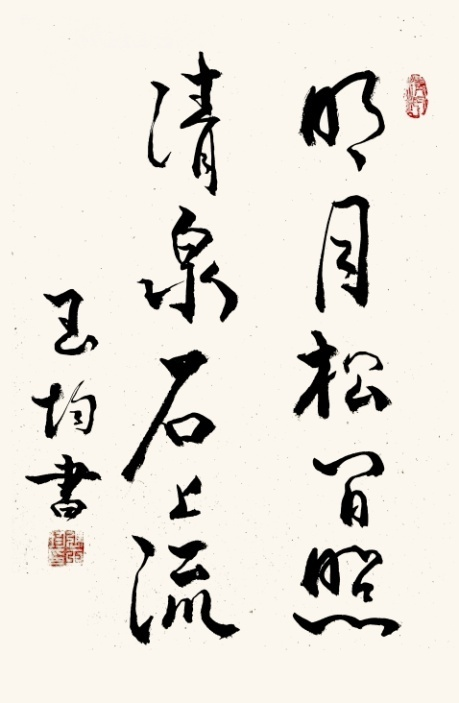 明月松间照
清泉石上流
玉均书